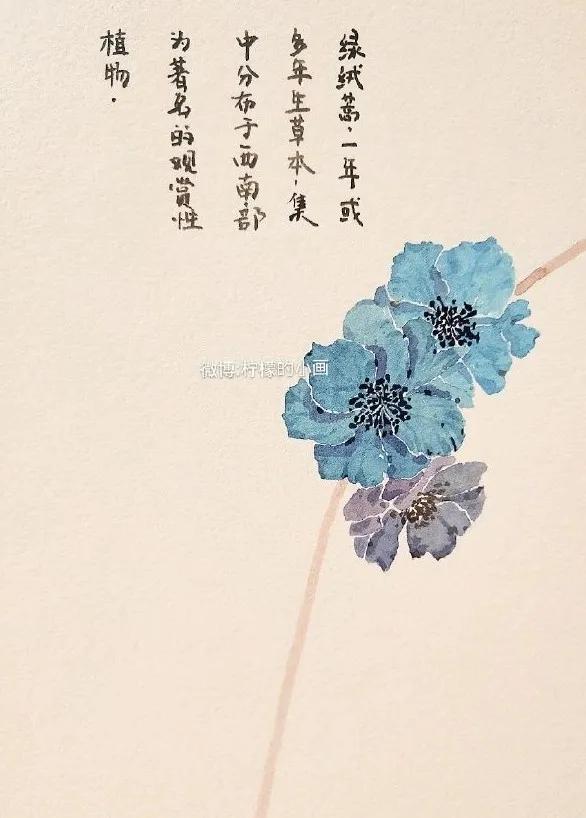 绿绒蒿，一年或
多年生草本，集
中分布于西南部
为著名的观赏性
植物.
微博:柠檬的小画